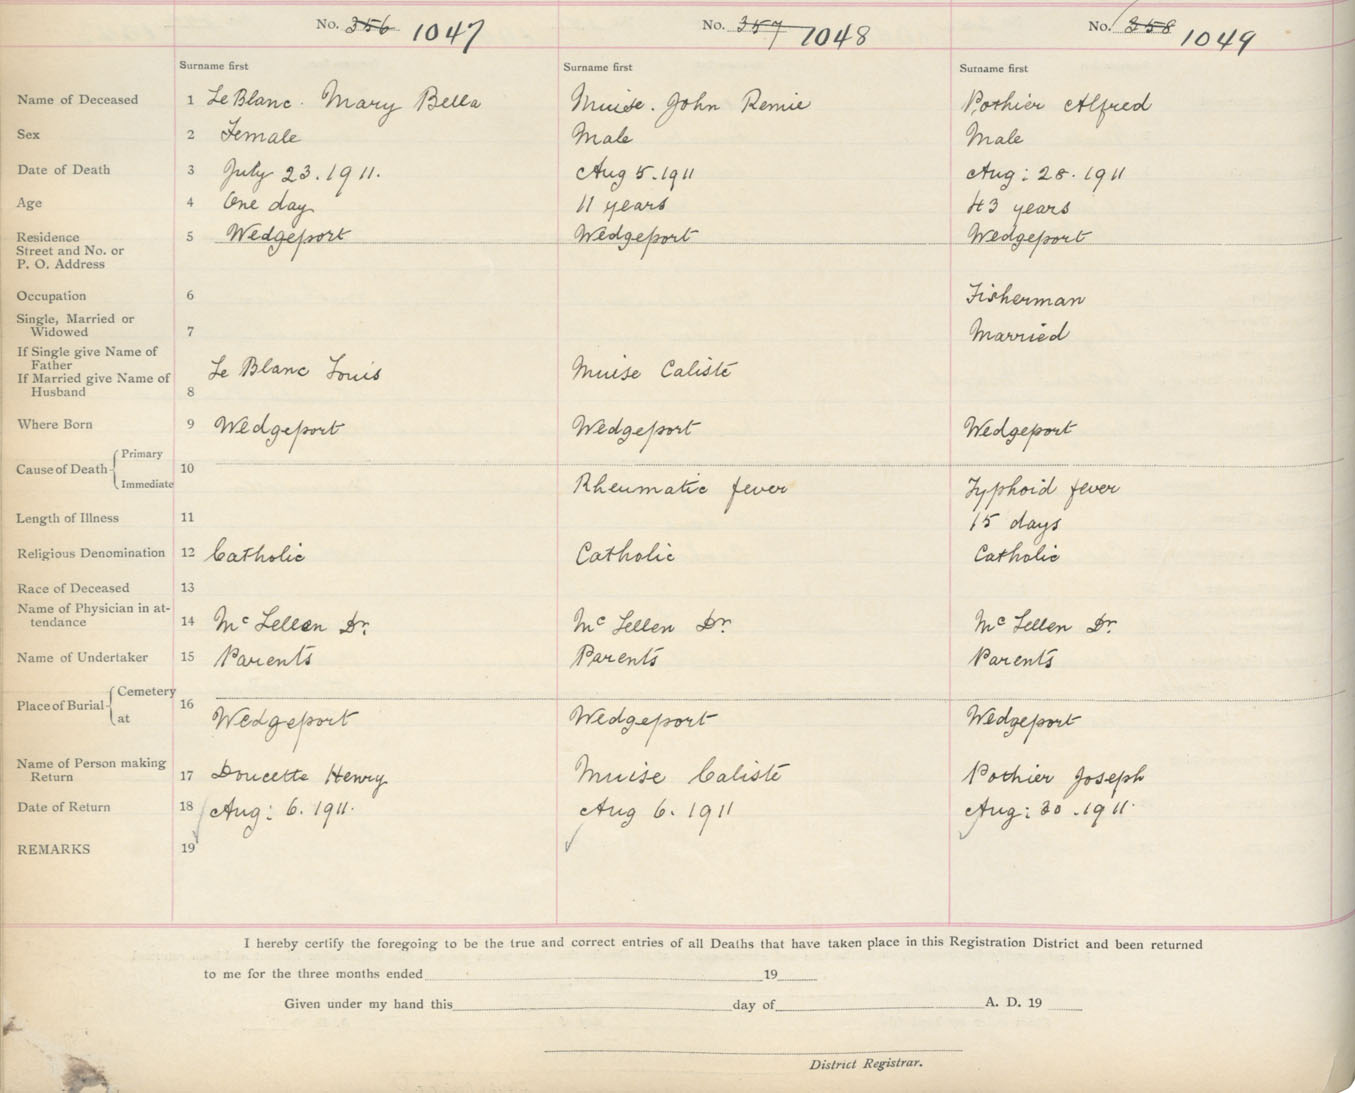 No. 356 1047 No. 357 1048 No. 358 1049
Surname first Surname first Surname first
Name of Deceased 1 Le Blanc. Mary Bella Muise. John Remie Pothier Alfred
Sex 2 Female Male Male
Date of Death 3 July 23. 1911. Aug 5. 1911 Aug: 28. 1911
Age 4 One day 11 years 43 years
Residence 5 Wedgeport Wedgeport Wedgeport
Street and No. or
P. O. Address
Occupation 6 Fisherman
Single, Married or
Widowed 7 Married
If Single give Name of
Father
Le Blanc Louis Muise Caliste
If Married give Name of
Husband 8
Where Born 9 Wedgeport Wedgeport Wedgeport
Primary
Cause of Death 10
Immediate Rheumatic fever Typhoid fever
Length of Illness 11 15 days
Religious Denomination 12 Catholic Catholic Catholic
Race of Deceased 13
Name of Physician in at-
tendance 14 Mc Lellen Dr. Mc Lellen Dr. Mc Lellen Dr.
Name of Undertaker 15 Parents Parents Parents
Cemetery
Place of Burial 16
at Wedgeport Wedgeport Wedgeport
Name of Person making
Return 17 Doucette Henry Muise Caliste Pothier Joseph
Date of Return 18 Aug: 6. 1911. Aug 6. 1911 Aug: 30. 1911.
REMARKS 19
I hereby certify the foregoing to be the true and correct entries of all Deaths that have taken place in this Registration District and been returned
to me for the three months ended 19
Given under my hand this day of A. D. 19
District Registrar.